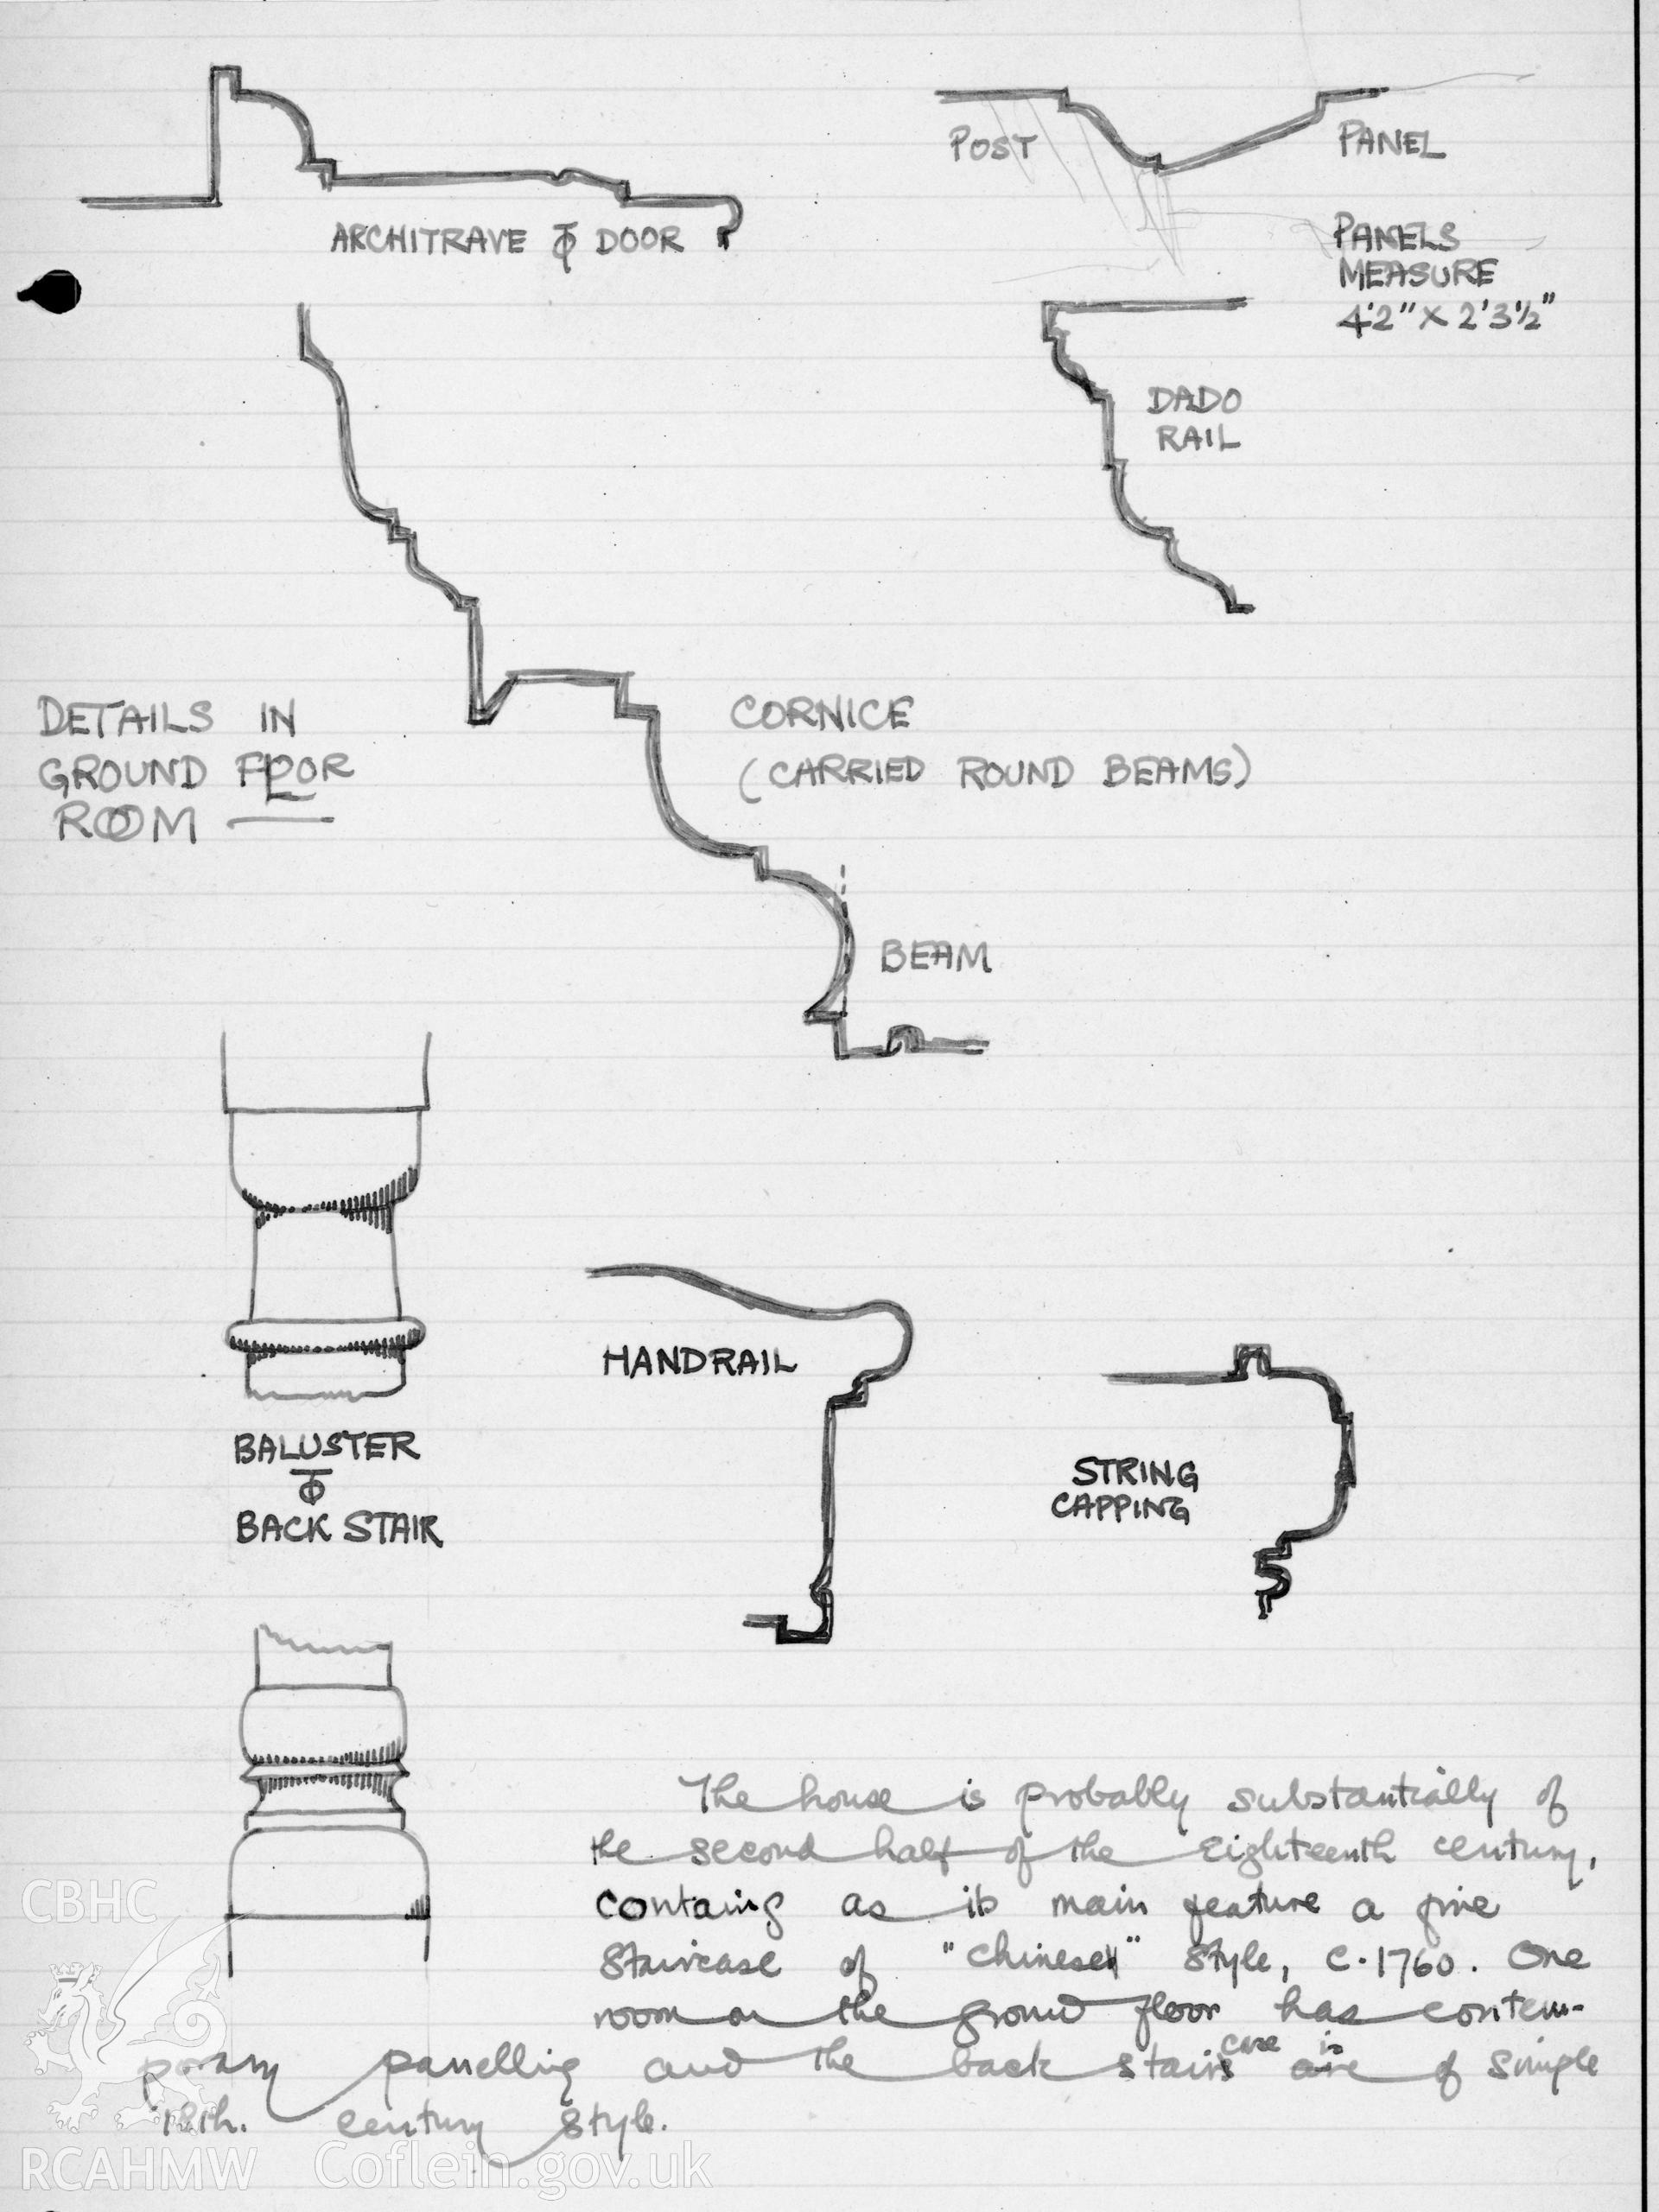 ARCHITRAVE TO DOOR
POST
PANEL
PANELS
MEASURE
4'2" X 2'3½"
DADO
RAIL
DETAILS IN
GROUND FLOOR
ROOM —
CORNICE
(CARRIED ROUND BEAMS)
BEAM
BALUSTER
TO
BACK STAIR
HANDRAIL
STRING
CAPPING
The house is probably substantially of
the second half of the Eighteenth century,
containing as its main feature a fine
staircase of "Chinese" style, c.1760. One
room on the ground floor has contem-
porary panelling and the back staircase is of simple
18th. century style.
CBHC
RCAHMW Coflein.gov.uk